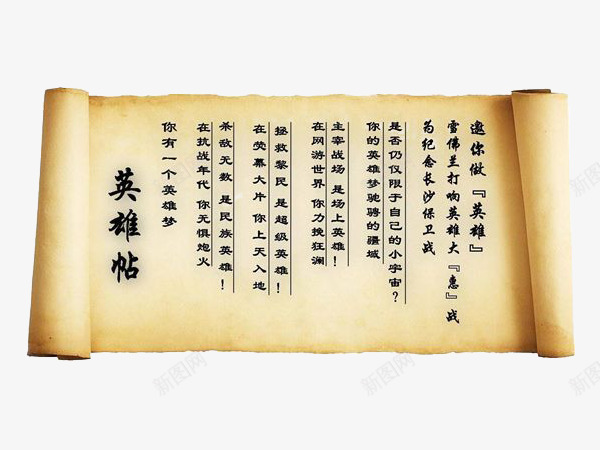 英雄帖
你有一个英雄梦
在抗战年代 你无惧炮火
杀敌无数 是民族英雄！
在荧幕大片 你上天入地
拯救黎民 是超级英雄！
在网游世界 你力挽狂澜
主宰战场 是场上英雄！
你的英雄梦驰骋的疆域
是否仍仅限于自己的小宇宙？
为纪念长沙保卫战
雪佛兰打响英雄大『惠』战
邀你做『英雄』
新图网